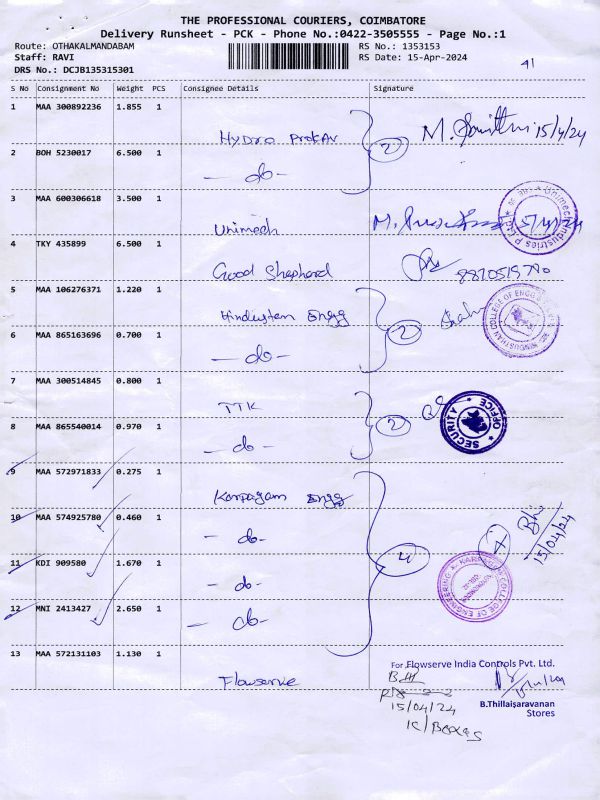 THE PROFESSIONAL COURIERS, COIMBATORE
Delivery Runsheet - PCK - Phone No.:0422-3505555 - Page No.:1
Route: OTHAKALMANDABAM
RS No.: 1353153
Staff: RAVI
RS Date: 15-Apr-2024
DRS No.: DCJB135315301
41
S No Consignment No Weight PCS Consignee Details Signature
1 MAA 300892236 1.855 1
Hydro 2 M. 15/4/24
2 BOH 5230017 6.500 1
- do -
3 MAA 600306618 3.500 1
Unimech M. 15/4/24
Unimech Industries P
4 TKY 435899 6.500 1
Good Shepherd
5 MAA 106276371 1.220 1
Hindustan Engg 2
HINDUSTHAN COLLEGE OF ENGG
6 MAA 865163696 0.700 1
- do -
7 MAA 300514845 0.800 1
TTK 2
SECURITY OFFICE
8 MAA 865540014 0.970 1
- do -
9 MAA 572971833 0.275 1
Karpagam Engg
10 MAA 574925780 0.460 1
- do -
15/04/24
11 KDI 909580 1.670 1
- do - 4
COLLEGE OF ENGINEERING
12 MNI 2413427 2.650 1
- do -
13 MAA 572131103 1.130 1
Flowserve
For Flowserve India Controls Pvt. Ltd.
15/04/24
B.Thillaisaravanan
Stores